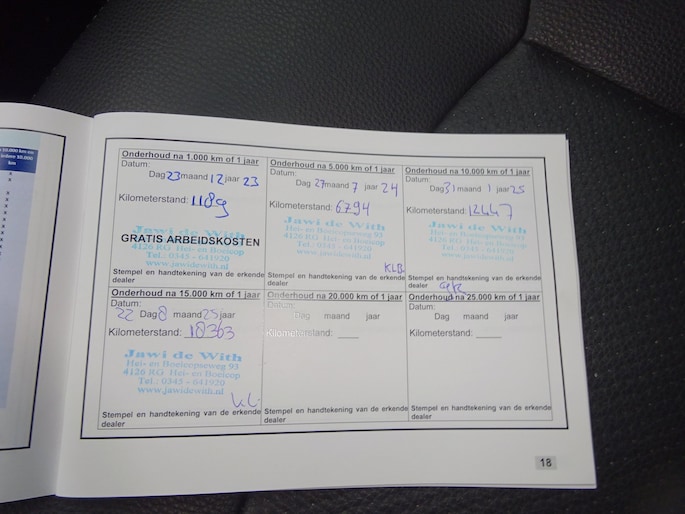 Onderhoud na 1.000 km of 1 jaar
Datum:
Dag 23 maand 12 jaar 23
Kilometerstand: 1189
Jawi de With
GRATIS ARBEIDSKOSTEN
4126 RG Hei- en Boeicop
Tel.: 0345 - 641920
www.jawidewith.nl
Stempel en handtekening van de erkende
dealer
Onderhoud na 5.000 km of 1 jaar
Datum:
Dag 27 maand 7 jaar 24
Kilometerstand: 6794
Jawi de With
Hei- en Boeicopseweg 93
4126 RG Hei- en Boeicop
Tel.: 0345 - 641920
www.jawidewith.nl
KLB
Stempel en handtekening van de erkende
dealer
Onderhoud na 10.000 km of 1 jaar
Datum:
Dag 31 maand 1 jaar 25
Kilometerstand: 12447
Jawi de With
Hei- en Boeicopseweg 93
4126 RG Hei- en Boeicop
Tel.: 0345 - 641920
www.jawidewith.nl
Stempel en handtekening van de erkende
dealer
Onderhoud na 15.000 km of 1 jaar
Datum:
22 Dag 8 maand 25 jaar
Kilometerstand: 18363
Jawi de With
Hei- en Boeicopseweg 93
4126 RG Hei- en Boeicop
Tel.: 0345 - 641920
www.jawidewith.nl
Stempel en handtekening van de erkende
dealer
Onderhoud na 20.000 km of 1 jaar
Datum:
Dag maand jaar
Kilometerstand: ____
Stempel en handtekening van de erkende
dealer
Onderhoud na 25.000 km of 1 jaar
Datum:
Dag maand jaar
Kilometerstand: _____
Stempel en handtekening van de erkende
dealer
18